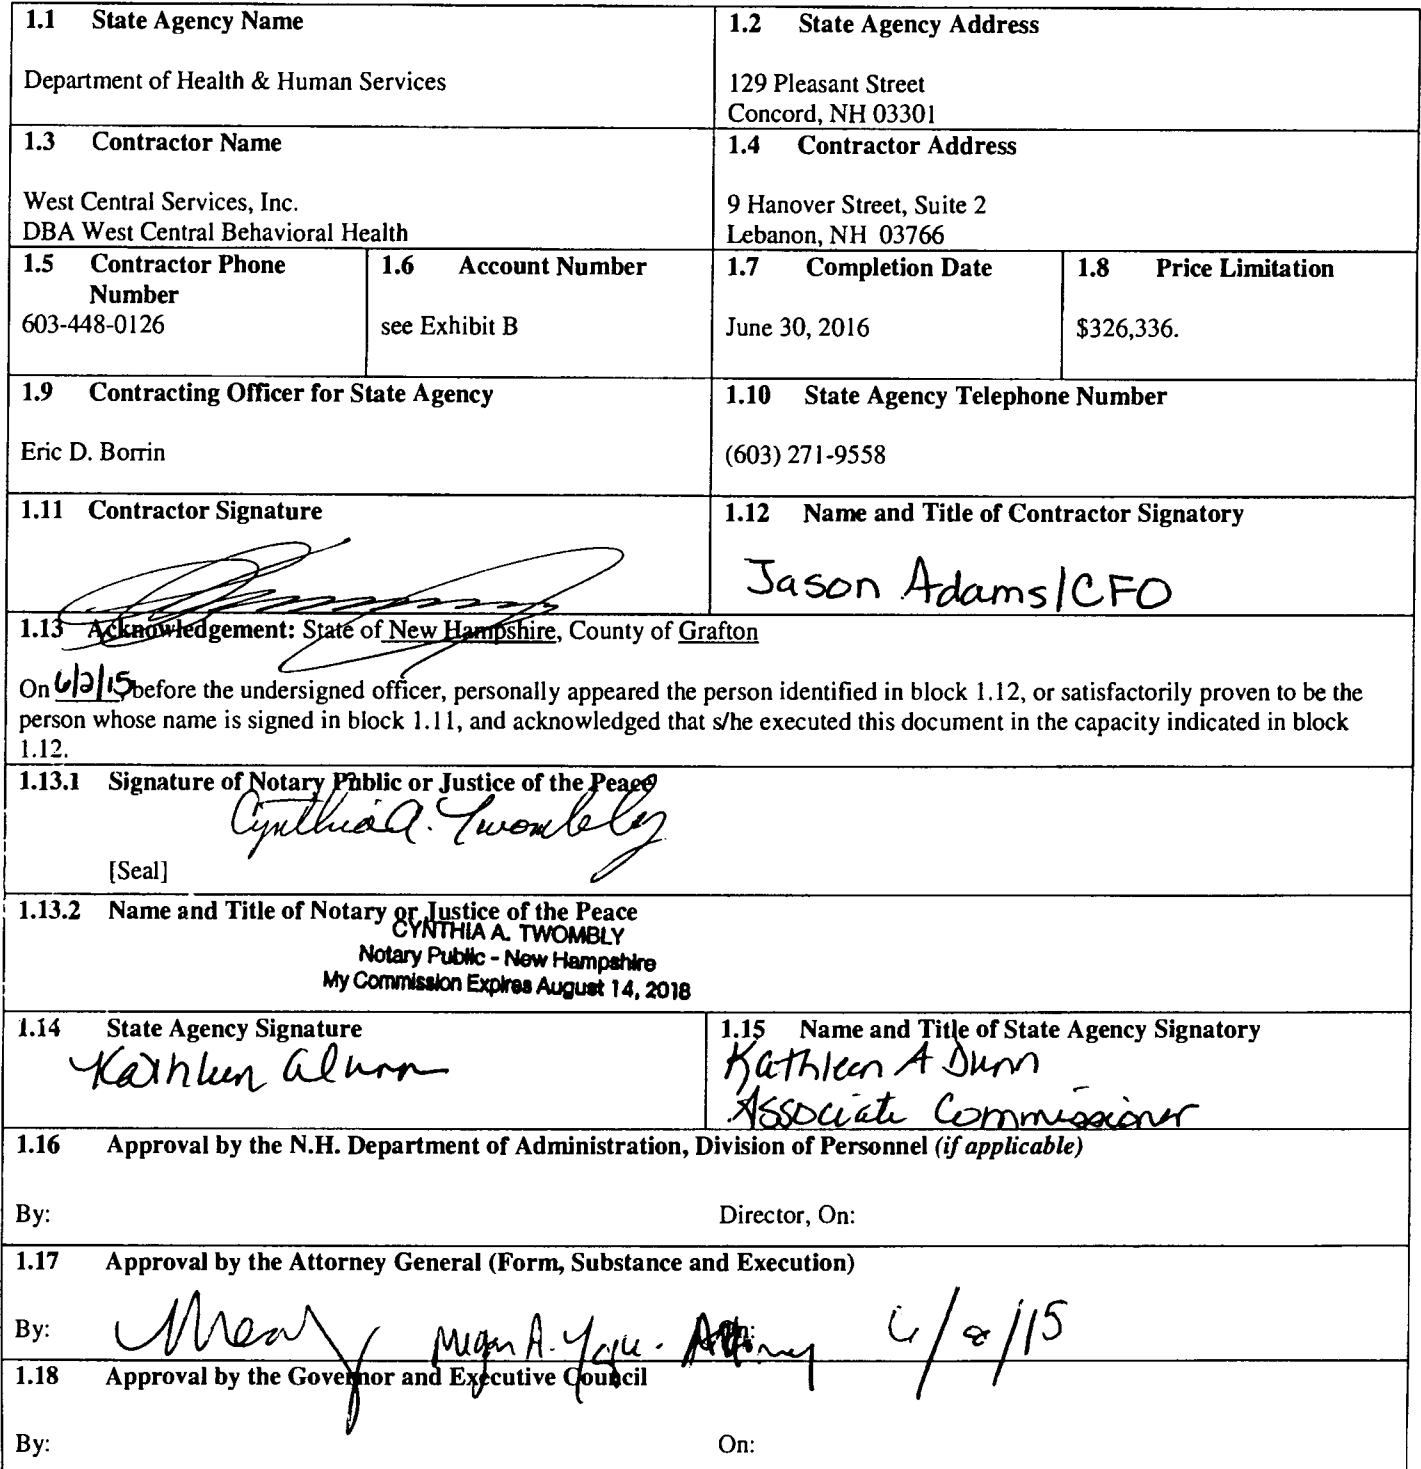 1.1 State Agency Name
Department of Health & Human Services
1.2 State Agency Address
129 Pleasant Street
Concord, NH 03301
1.3 Contractor Name
West Central Services, Inc.
DBA West Central Behavioral Health
1.4 Contractor Address
9 Hanover Street, Suite 2
Lebanon, NH 03766
1.5 Contractor Phone
Number
603-448-0126
1.6 Account Number
see Exhibit B
1.7 Completion Date
June 30, 2016
1.8 Price Limitation
$326,336.
1.9 Contracting Officer for State Agency
Eric D. Borrin
1.10 State Agency Telephone Number
(603) 271-9558
1.11 Contractor Signature
1.12 Name and Title of Contractor Signatory
Jason Adams/CFO
1.13 Acknowledgement: State of New Hampshire, County of Grafton
On 6/2/15 before the undersigned officer, personally appeared the person identified in block 1.12, or satisfactorily proven to be the
person whose name is signed in block 1.11, and acknowledged that s/he executed this document in the capacity indicated in block
1.12.
1.13.1 Signature of Notary Public or Justice of the Peace
Cynthia A. Twombly
[Seal]
1.13.2 Name and Title of Notary or Justice of the Peace
CYNTHIA A. TWOMBLY
Notary Public - New Hampshire
My Commission Expires August 14, 2018
1.14 State Agency Signature
Kathleen A Dunn
1.15 Name and Title of State Agency Signatory
Kathleen A Dunn
Associate Commissioner
1.16 Approval by the N.H. Department of Administration, Division of Personnel (if applicable)
By:
Director, On:
1.17 Approval by the Attorney General (Form, Substance and Execution)
By: Megan A. - Attorney On:
1.18 Approval by the Governor and Executive Council
By:
On: